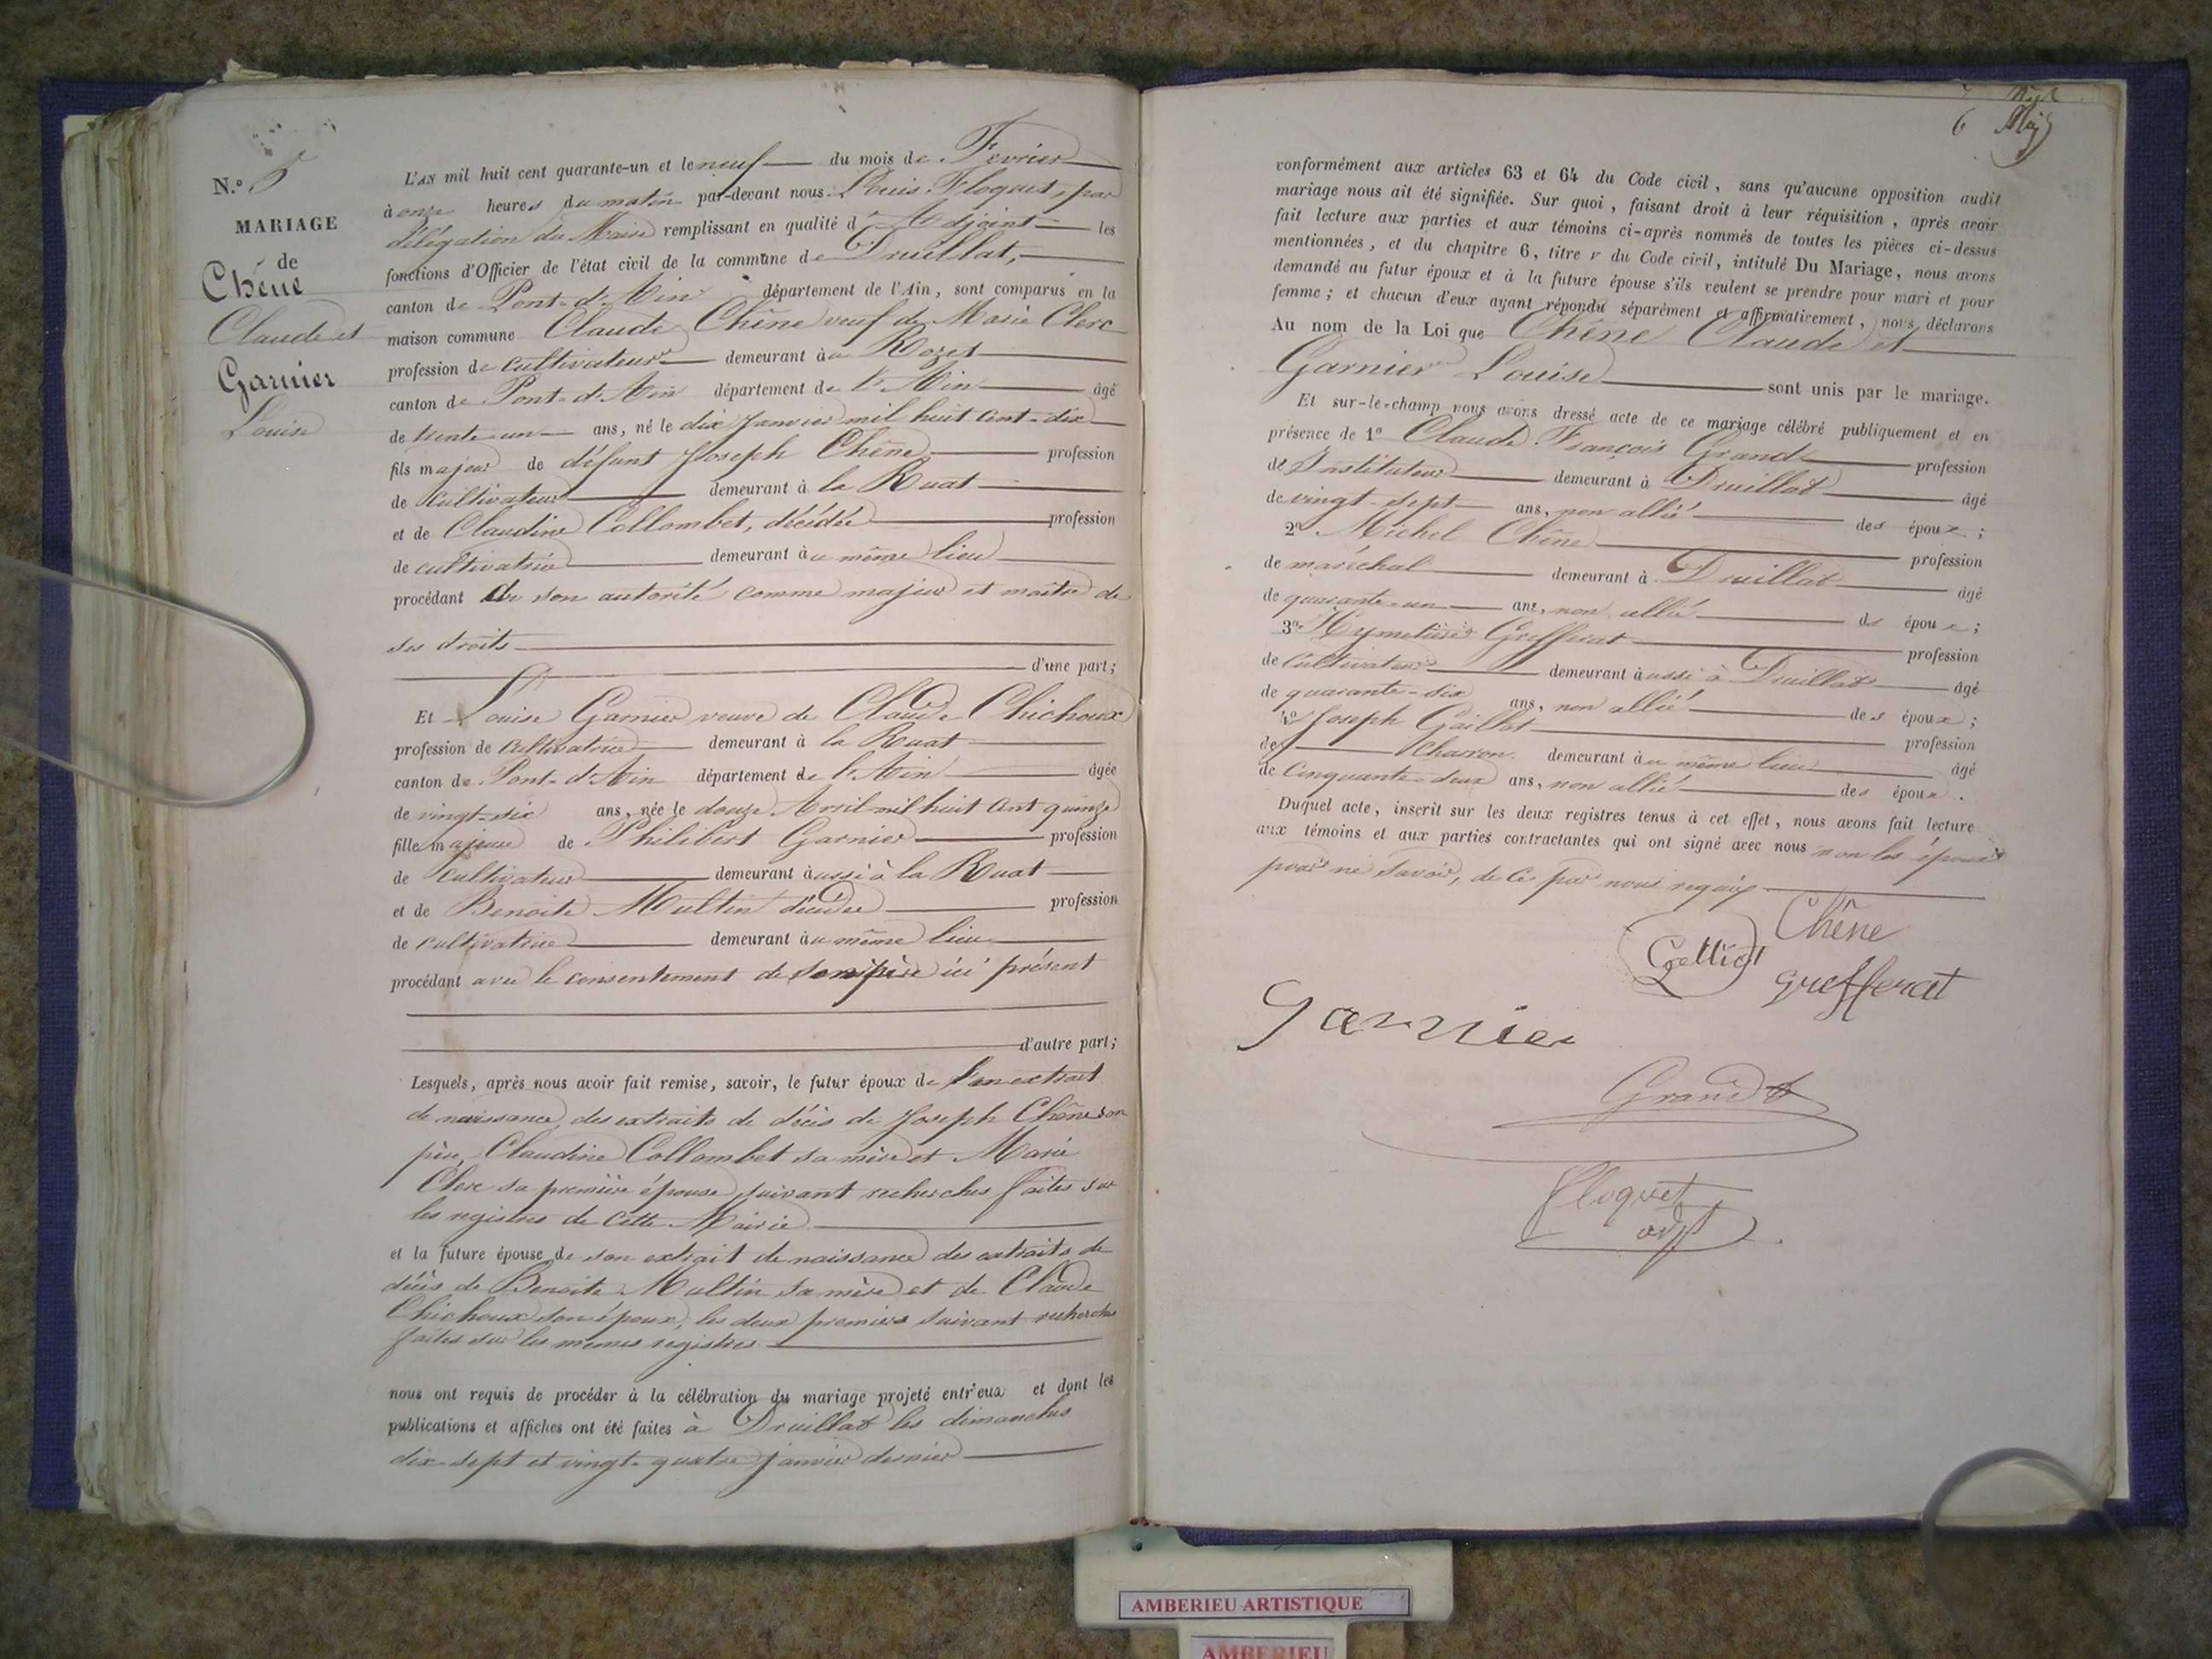 N.º 5
MARIAGE
de
Chêne
Claude et
Garnier
Louise
L'AN mil huit cent quarante-un et le neuf du mois de Fevrier
à onze heures du matin par-devant nous Louis Floquet, par
délégation du Maire remplissant en qualité d'Adjoint les
fonctions d'Officier de l'état civil de la commune de Druillat,
canton de Pont-d'Ain département de l'Ain, sont comparus en la
maison commune Claude Chêne veuf de Marie Clerc
profession de cultivateur demeurant au Rozet
canton de Pont-d'Ain département de l'Ain âgé
de trente-un ans, né le dix Janvier mil huit cent-dix
fils majeur de défunt Joseph Chêne profession
de cultivateur demeurant à la Ruat
et de Claudine Collombet, décédée profession
de cultivatrice demeurant au même lieu
procédant de son autorité comme majeur et maître de
ses droits
d'une part;
Et Louise Garnier veuve de Claude Chichoux
profession de cultivatrice demeurant à la Ruat
canton de Pont-d'Ain département de l'Ain âgée
de vingt-six ans, née le douze Avril mil huit cent quinze
fille majeure de Philibert Garnier profession
de cultivateur demeurant aussi à la Ruat
et de Benoite Multin décédée profession
de cultivatrice demeurant au même lieu
procédant avec le consentement de son père ici présent
d'autre part;
Lesquels, après nous avoir fait remise, savoir, le futur époux de son extrait
de naissance, des extraits de décès de Joseph Chêne son
père, Claudine Collombet sa mère et Marie
Clerc sa première épouse suivant recherches faites sur
les registres de cette Mairie
et la future épouse de son extrait de naissance des extraits de
décès de Benoite Multin sa mère et de Claude
Chichoux son époux, les deux premiers suivant recherches
faites sur les mêmes registres
nous ont requis de procéder à la célébration du mariage projeté entr'eux et dont les
publications et affiches ont été faites à Druillat les dimanches
dix-sept et vingt-quatre janvier dernier
6
conformément aux articles 63 et 64 du Code civil, sans qu'aucune opposition audit
mariage nous ait été signifiée. Sur quoi, faisant droit à leur réquisition, après avoir
fait lecture aux parties et aux témoins ci-après nommés de toutes les pièces ci-dessus
mentionnées, et du chapitre 6, titre V du Code civil, intitulé Du Mariage, nous avons
demandé au futur époux et à la future épouse s'ils veulent se prendre pour mari et pour
femme; et chacun d'eux ayant répondu séparément et affirmativement, nous déclarons
Au nom de la Loi que Chêne Claude et
Garnier Louise sont unis par le mariage.
Et sur-le-champ nous avons dressé acte de ce mariage célébré publiquement et en
présence de 1º Claude François Grand profession
de Instituteur demeurant à Druillat âgé
de vingt-sept ans, non allié des époux;
2º Michel Chêne profession
de maréchal demeurant à Druillat âgé
de quarante-un ans, non allié des époux;
3º Hymetière Grefferat profession
de Cultivateur demeurant aussi à Druillat âgé
de quarante-six ans, non allié des époux;
4º Joseph Gaillot profession
de Charron demeurant au même lieu âgé
de Cinquante-deux ans, non allié des époux.
Duquel acte, inscrit sur les deux registres tenus à cet effet, nous avons fait lecture
aux témoins et aux parties contractantes qui ont signé avec nous non les époux
pour ne savoir, de ce par nous requis
Chêne
Grefferat
Garnier
Grand
Floquet
adjt
AMBERIEU ARTISTIQUE
AMBERIEU